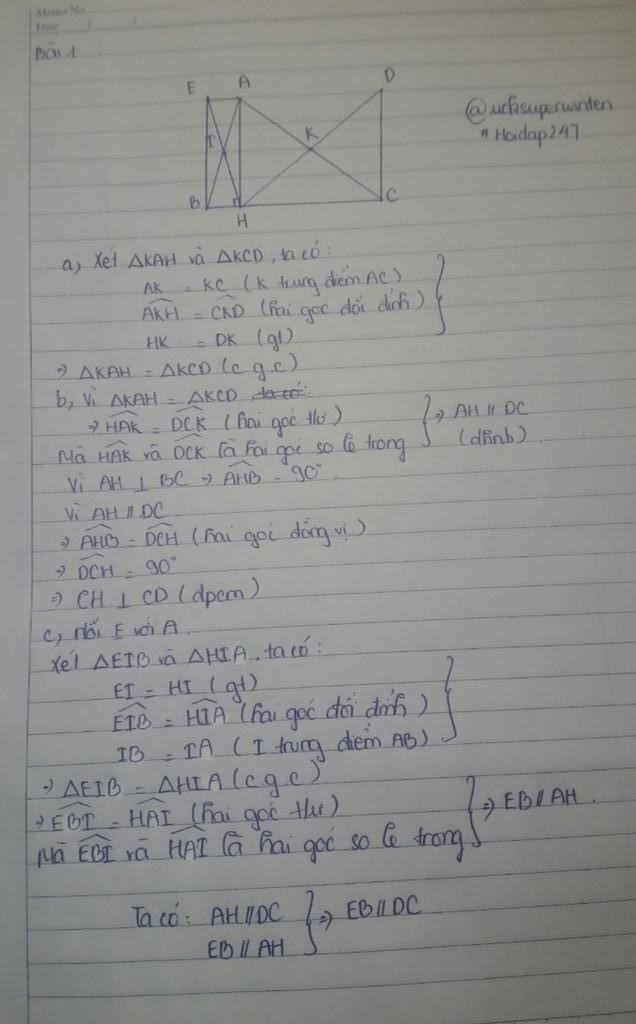 Memo No.
Date / /
Bài 1
E A D
@ucksuperwinten
"Hoidap247
I K
B H C
a, Xét △KAH và △KCD, ta có:
AK = KC (K trung điểm AC)
AKH = CKD (hai góc đối đỉnh)
HK = DK (gt)
⇒ △KAH = △KCD (c g.c)
b, Vì △KAH = △KCD, ta có:
⇒ HAK = DCK (hai góc thư)
Mà HAK và DCK là hai góc so le trong
⇒ AH // DC
(đhnb)
Vì AH ⊥ BC ⇒ AHB = 90°.
Vì AH // DC
⇒ AHB = DCH (hai góc đồng vị)
⇒ DCH = 90°
⇒ CH ⊥ CD (dpcm)
c, Nối E với A.
Xét △EIB và △HIA, ta có:
EI = HI (gt)
EIB = HIA (hai góc đối đỉnh)
IB = IA (I trung điểm AB)
⇒ △EIB = △HIA (c g.c)
⇒ EBI = HAI (hai góc thư)
Mà EBI và HAI là hai góc so le trong
⇒ EB // AH.
Ta có: AH // DC
EB // AH
⇒ EB // DC